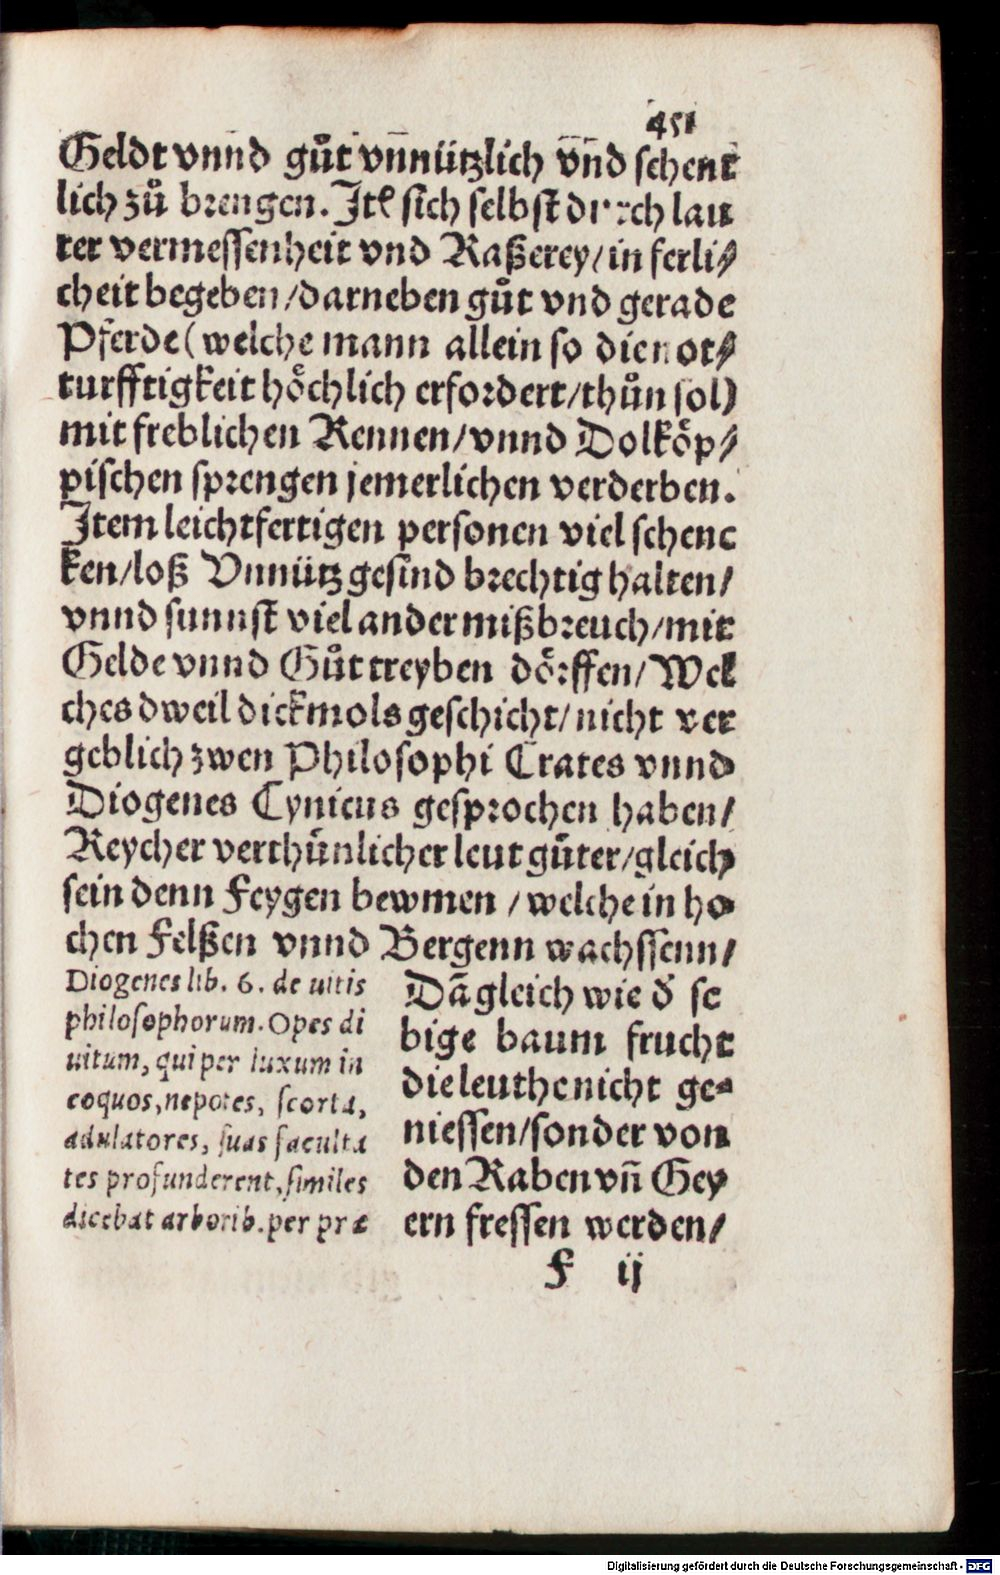 451
Geldt vnnd guͦt vn̄nützlich vn̄d schent
lich zuͦ brengen. Itē sich selbst durch lau
ter vermessenheit vnd Raßerey/ in ferli⸗
cheit begeben/darneben guͦt vnd gerade
Pferde (welche mann allein so die not⸗
turfftigkeit hoͤchlich erfordert/thuͦn sol)
mit freblichen Rennen/vnnd Dolkoͤp⸗
pischen sprengen jemerlichen verderben.
Item leichtfertigen personen viel schenc
ken/loß Vnnütz gesind brechtig halten/
vnnd sunnst viel ander mißbreuch/mit
Gelde vnnd Guͦt treyben doͤrffen/ Wel
ches dweil dickmols geschicht/ nicht ver
geblich zwen Philosophi Crates vnnd
Diogenes Cynicus gesprochen haben/
Reycher verthuͤnlicher leut guͤter/gleich
sein denn Feygen bewmen / welche in ho
chen Felßen vnnd Bergenn wachssenn/
Dā gleich wie d̄ se
bige baum frucht
die leuthe nicht ge⸗
niessen/sonder von
den Raben vn̄ Gey
ern fressen werden/
Diogenes lib. 6. de uitis
philosophorum. Opes di
uitum, qui per luxum in
coquos, nepotes, scorta,
adulatores, suas faculta
tes profunderent, similes
dicebat arborib. per præ
F ij
Digitalisierung gefördert durch die Deutsche Forschungsgemeinschaft - DFG